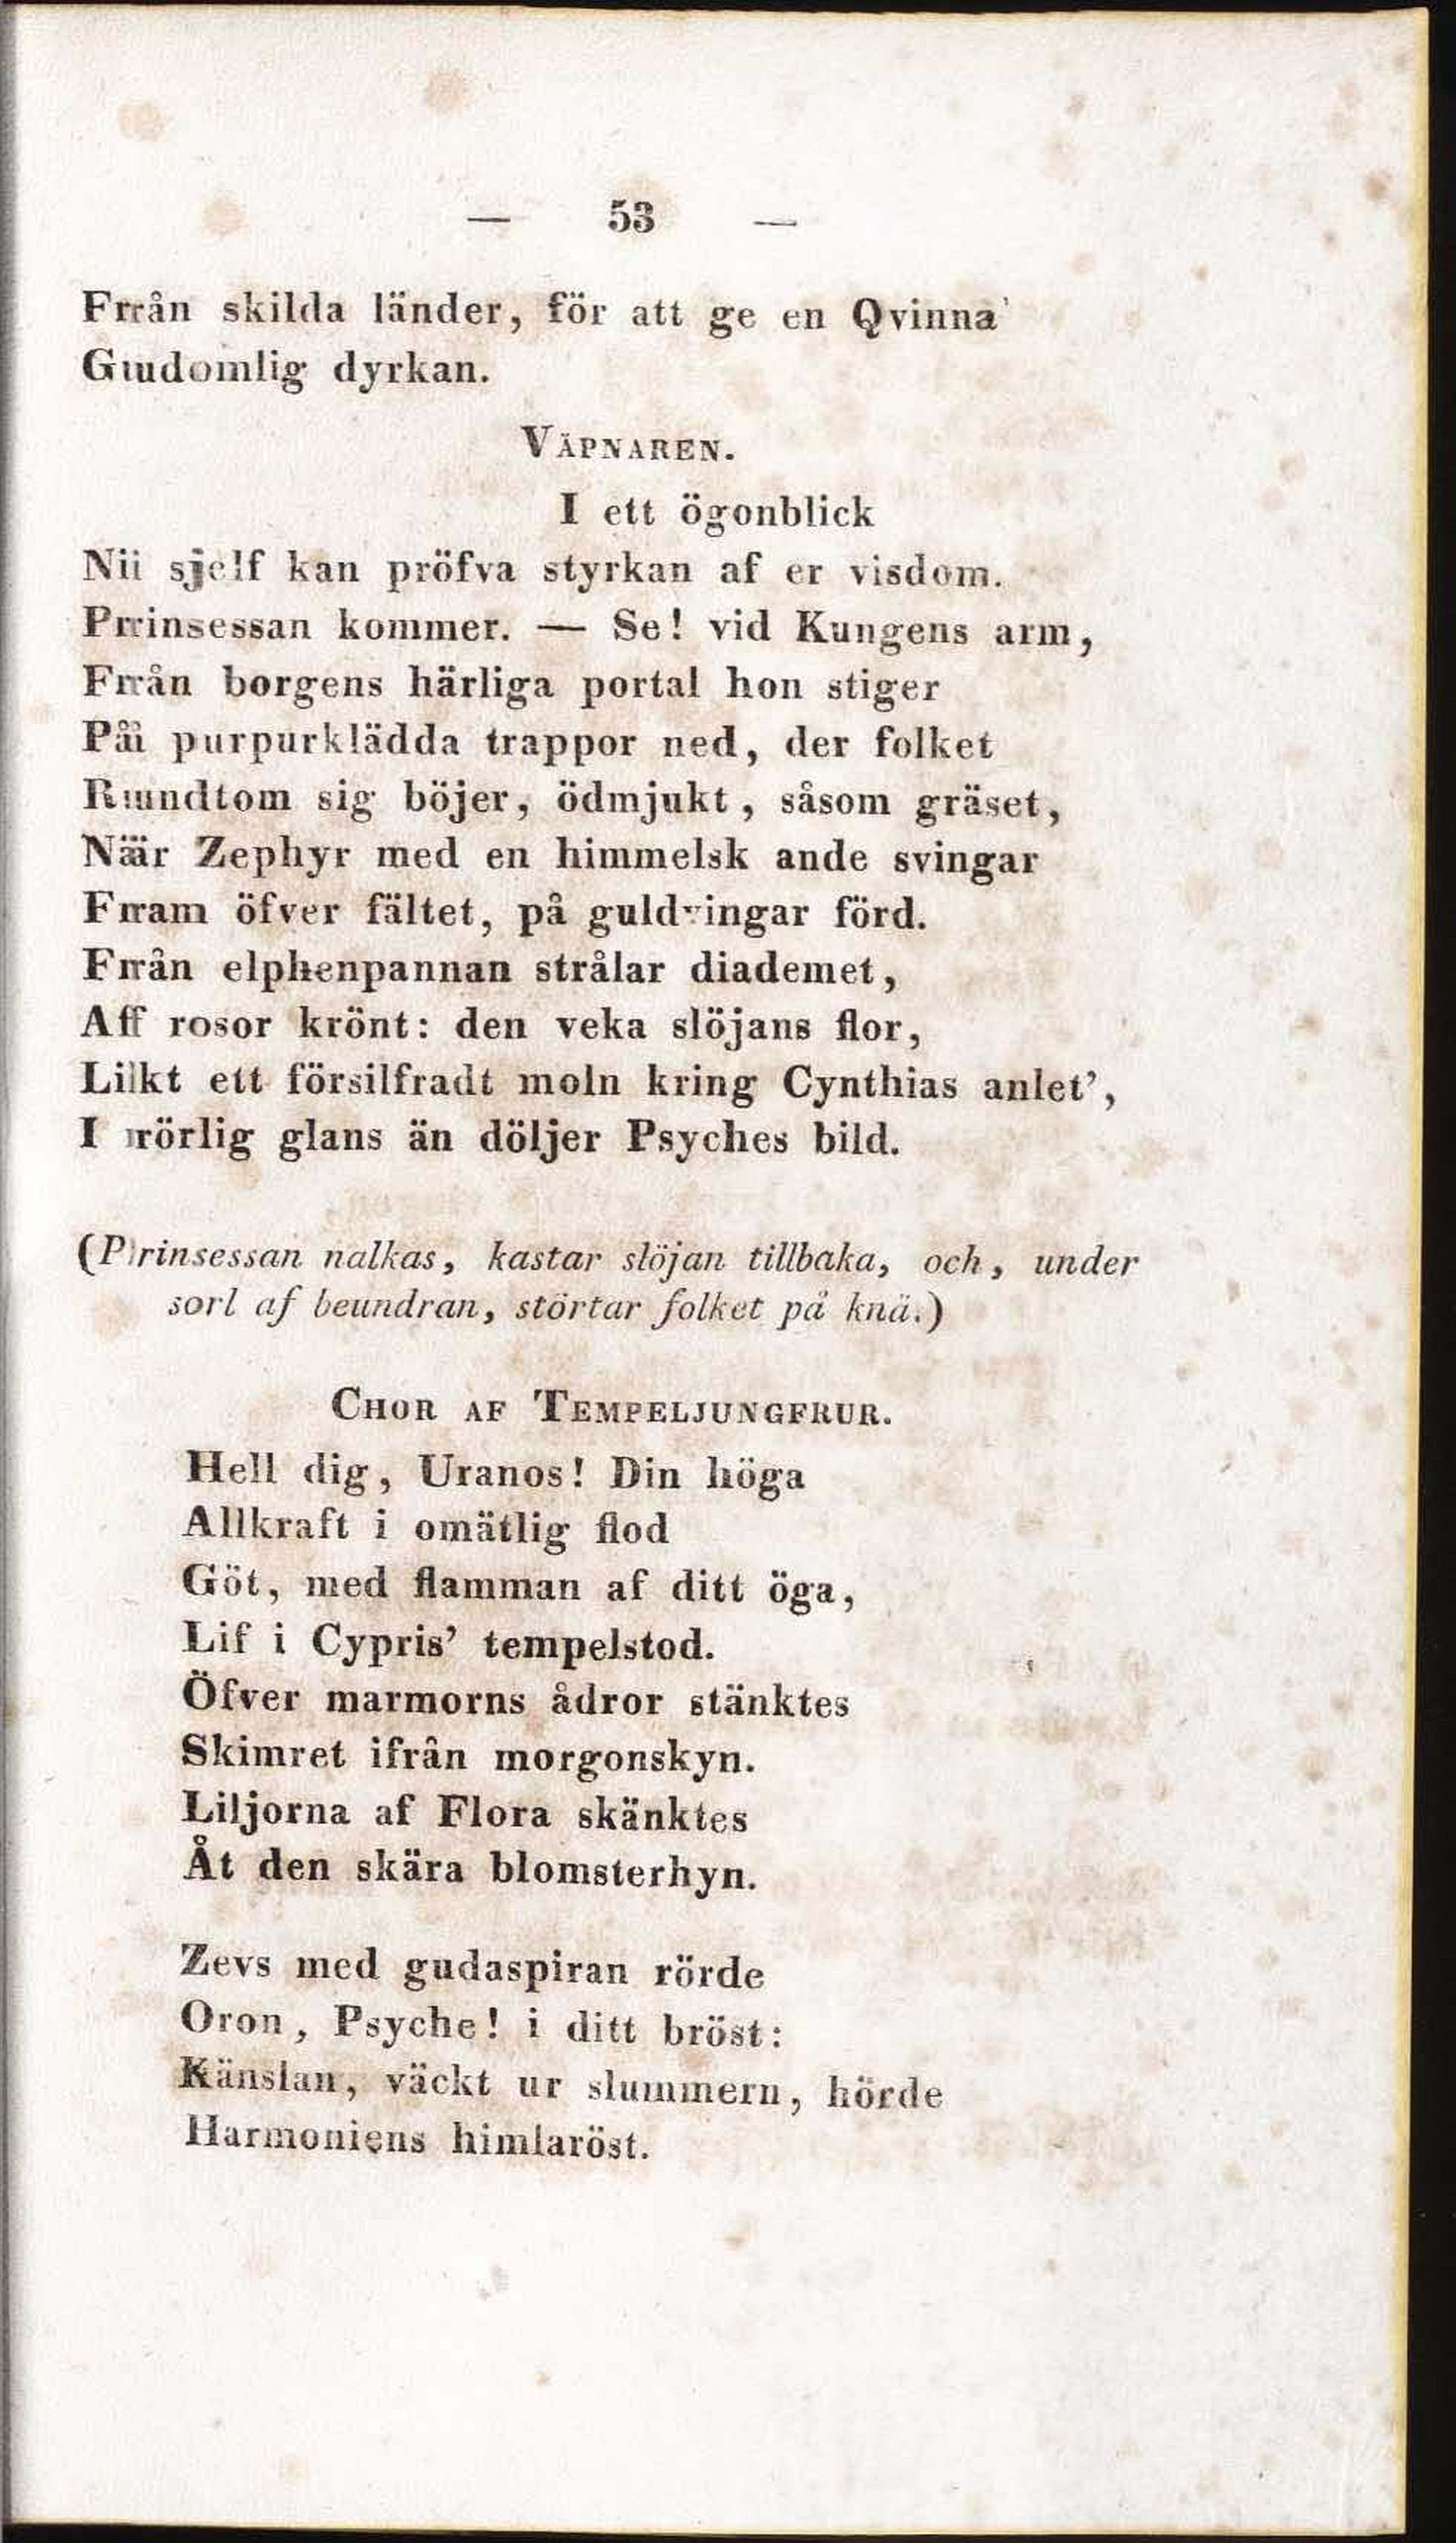 — 53 —
Från skilda länder, för att ge en Qvinna
Gudomlig dyrkan.
VÄPNAREN.
I ett ögonblick
Ni sjelf kan pröfva styrkan af er visdom.
Prinsessan kommer. — Se! vid Kungens arm,
Från borgens härliga portal hon stiger
På purpurklädda trappor ned, der folket
Rundtom sig böjer, ödmjukt, såsom gräset,
När Zephyr med en himmelsk ande svingar
Fram öfver fältet, på guldvingar förd.
Från elphenpannan strålar diademet,
Af rosor krönt: den veka slöjans flor,
Likt ett försilfradt moln kring Cynthias anlet',
I rörlig glans än döljer Psyches bild.
(Prinsessan nalkas, kastar slöjan tillbaka, och, under
sorl af beundran, störtar folket på knä.)
CHOR AF TEMPELJUNGFRUR.
Hell dig, Uranos! Din höga
Allkraft i omätlig flod
Göt, med flamman af ditt öga,
Lif i Cypris' tempelstod.
Öfver marmorns ådror stänktes
Skimret ifrån morgonskyn.
Liljorna af Flora skänktes
Åt den skära blomsterhyn.
Zevs med gudaspiran rörde
Oron, Psyche! i ditt bröst:
Känslan, väckt ur slummern, hörde
Harmoniens himlaröst.